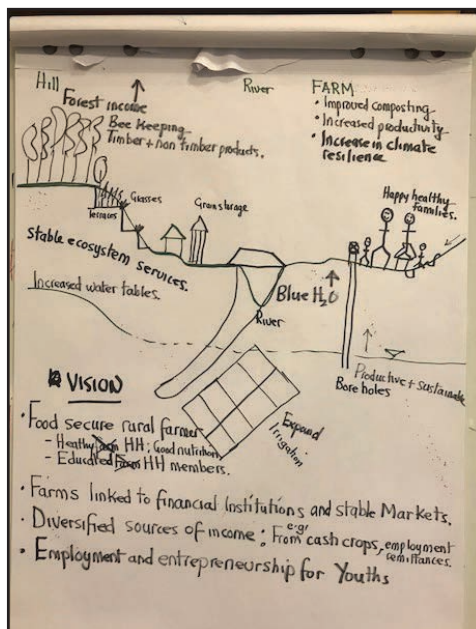 Hill
River
FARM
↑ Forest income
Bee Keeping
Timber + non timber products.
• Improved composting
• Increased productivity
• Increase in climate
resilience
Happy healthy
families.
Grasses
Terraces
Grain storage
Stable ecosystem services.
Increased water tables.
Blue H₂O
River
Productive + sustainable
Bore holes
Expand
Irrigation
VISION
• Food secure rural farmer
- Healthy HH; Good nutrition
- Educated HH members.
• Farms linked to financial Institutions and stable Markets.
• Diversified sources of income: e.g. From cash crops, employment
remittances.
• Employment and entrepreneurship for Youths